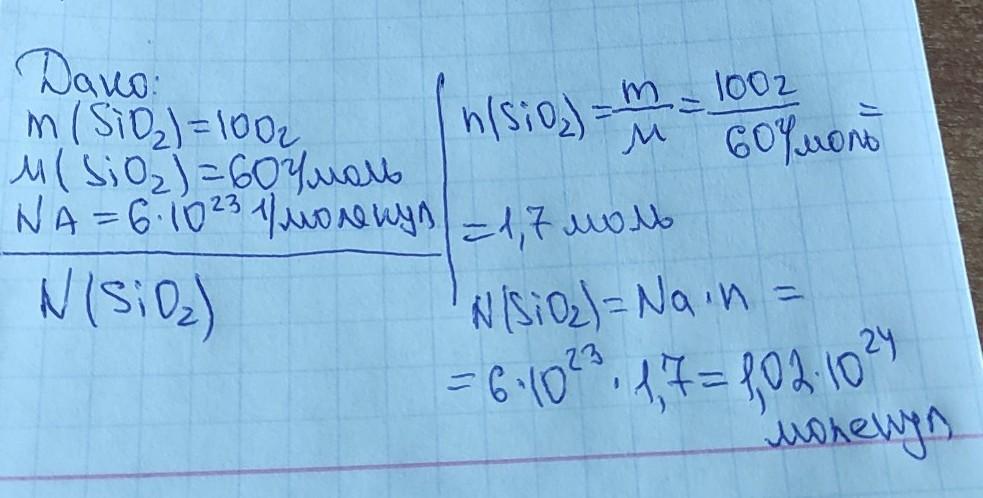 Дано:
m(SiO₂)=100г
M(SiO₂)=60г/моль
NA=6·10²³ 1/молекул
N(SiO₂)
n(SiO₂)=m/M=100г/60г/моль=
=1,7 моль
N(SiO₂)=Na·n=
=6·10²³·1,7=1,02·10²⁴
молекул